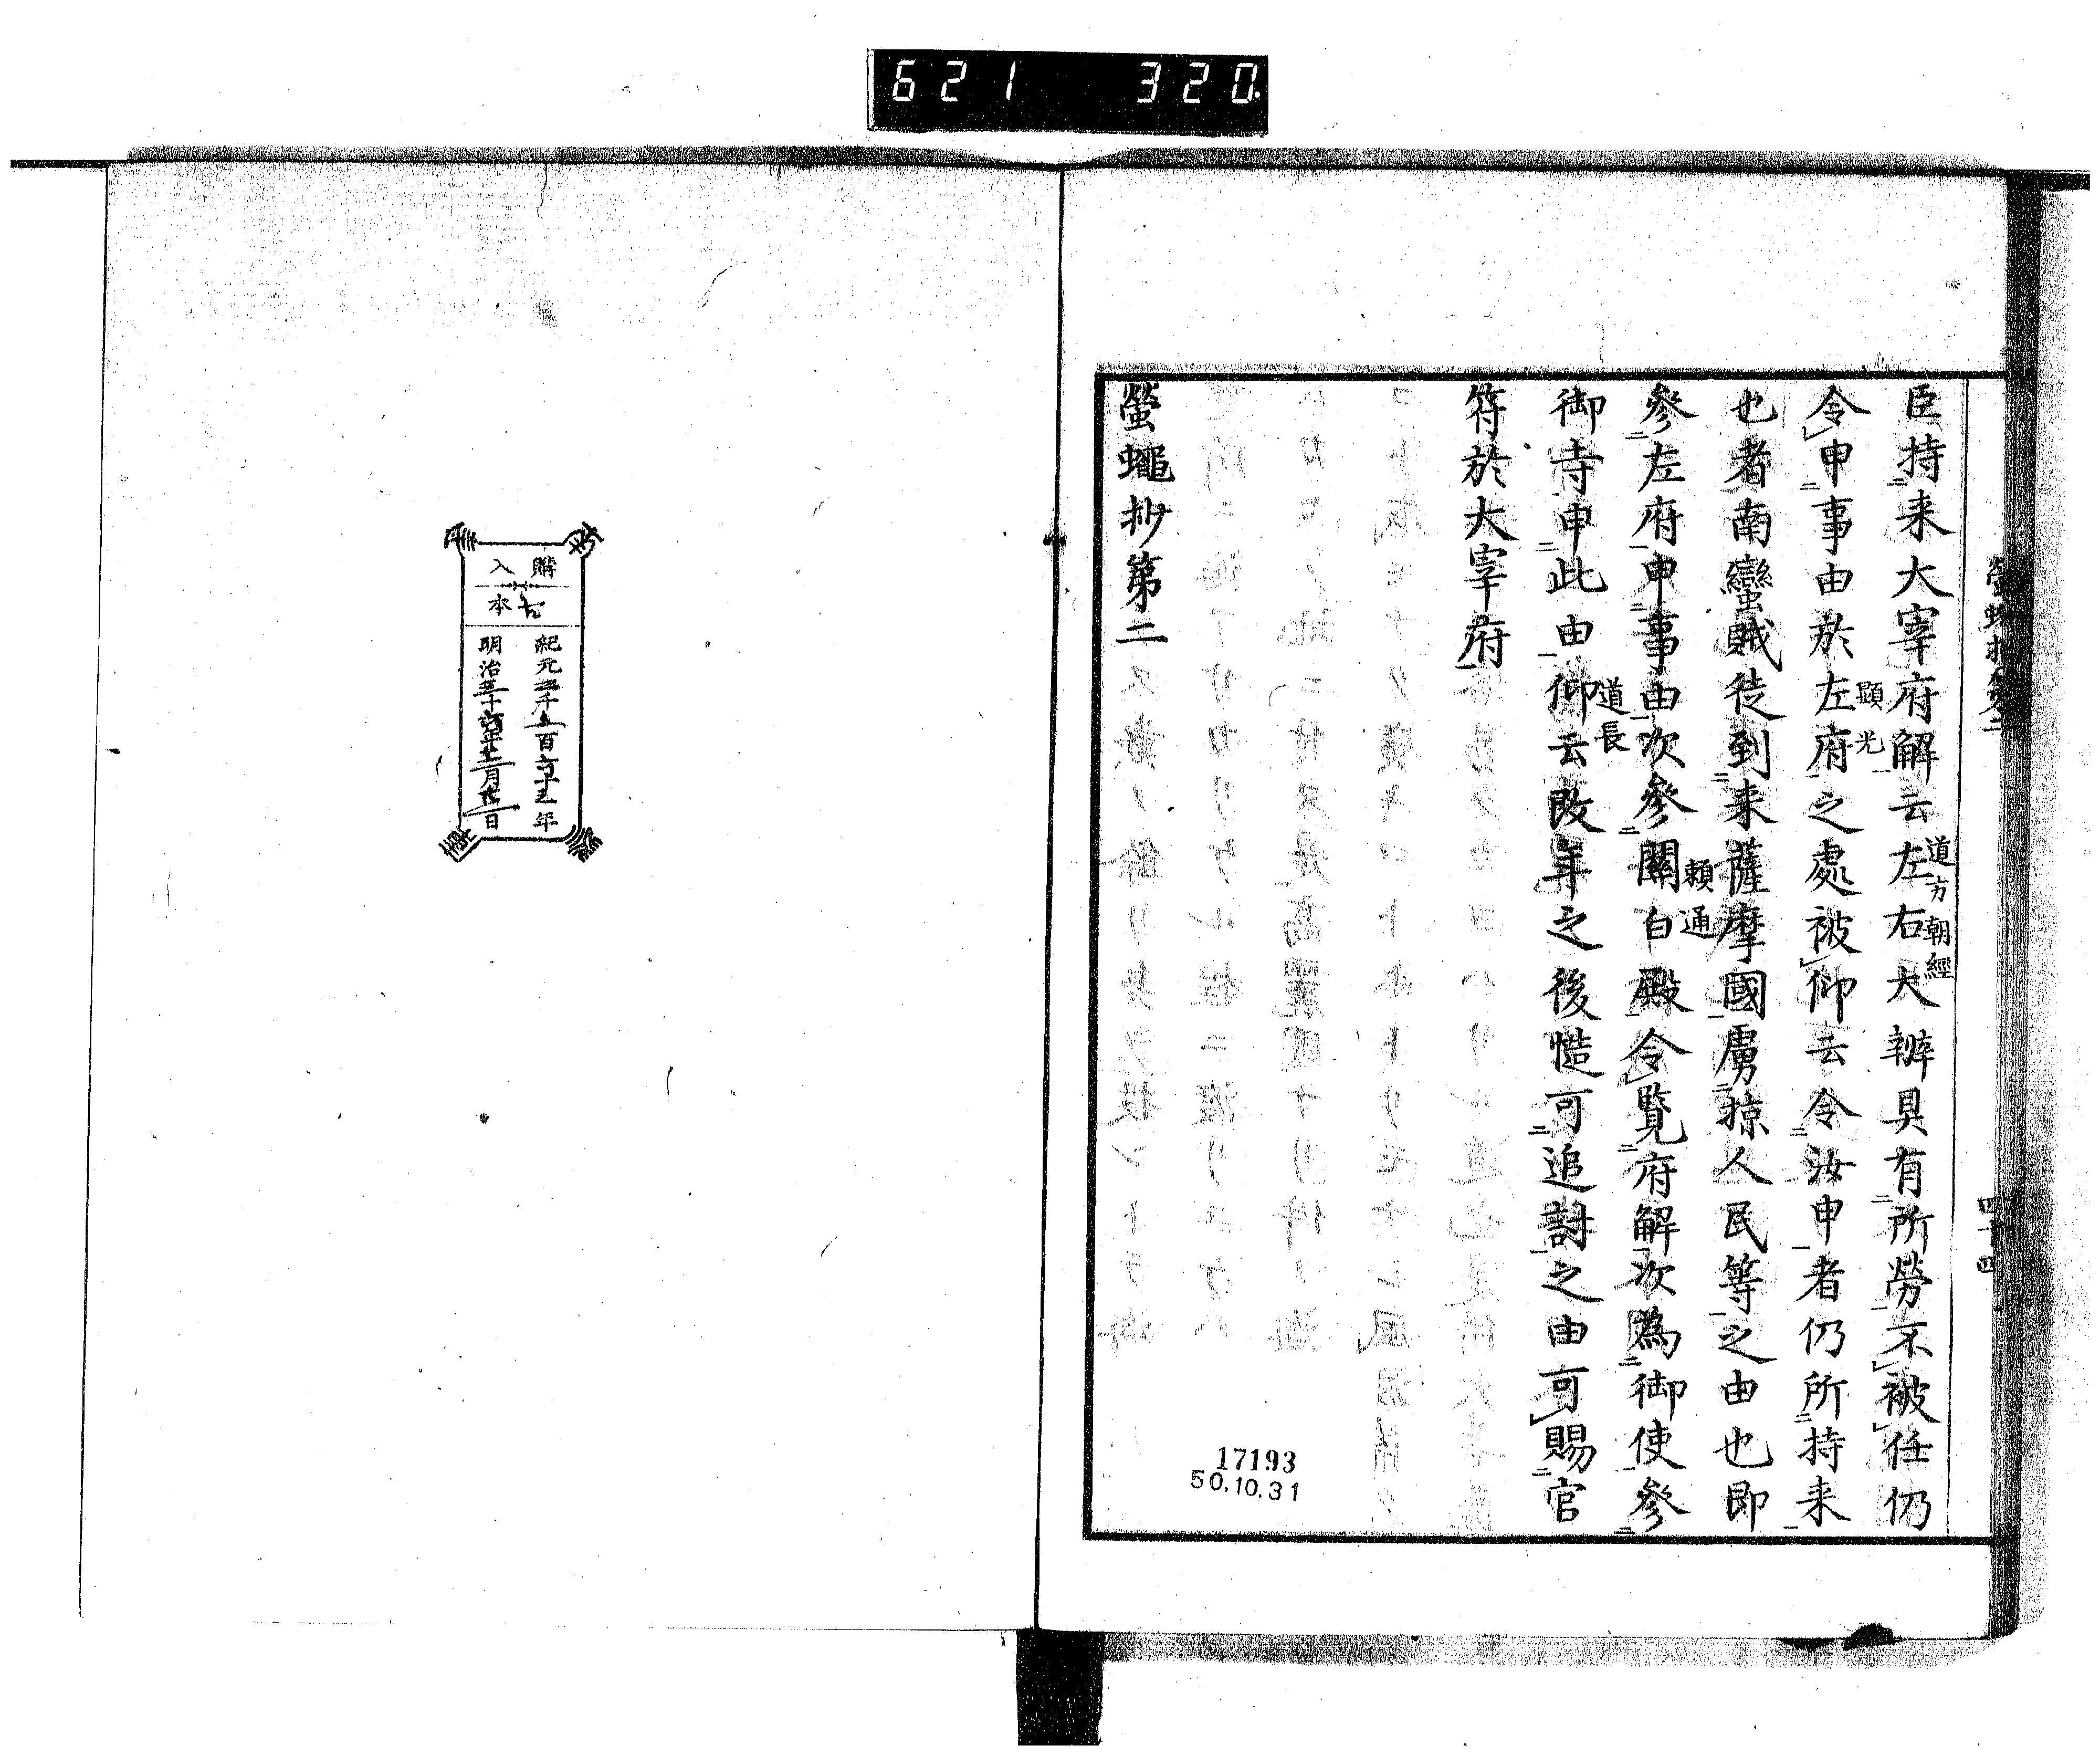 621 320
螢蠅抄第二
四十四
臣持来大宰府解云左右大辨具有所勞不被任仍
道方朝經
令申事由於左府之處被仰云令汝申者仍所持来
顕光
也者南蠻賊徒到来薩摩國虜掠人民等之由也即
參左府申事由次參關白殿令覧府解次為御使參
頼通
御寺申此由仰云改年之後慥可追討之由可賜官
道長
符於大宰府
螢蠅抄第二
17193
50.10.31
購入
古本
紀元二千五百六十三年
明治三十六年十二月
日